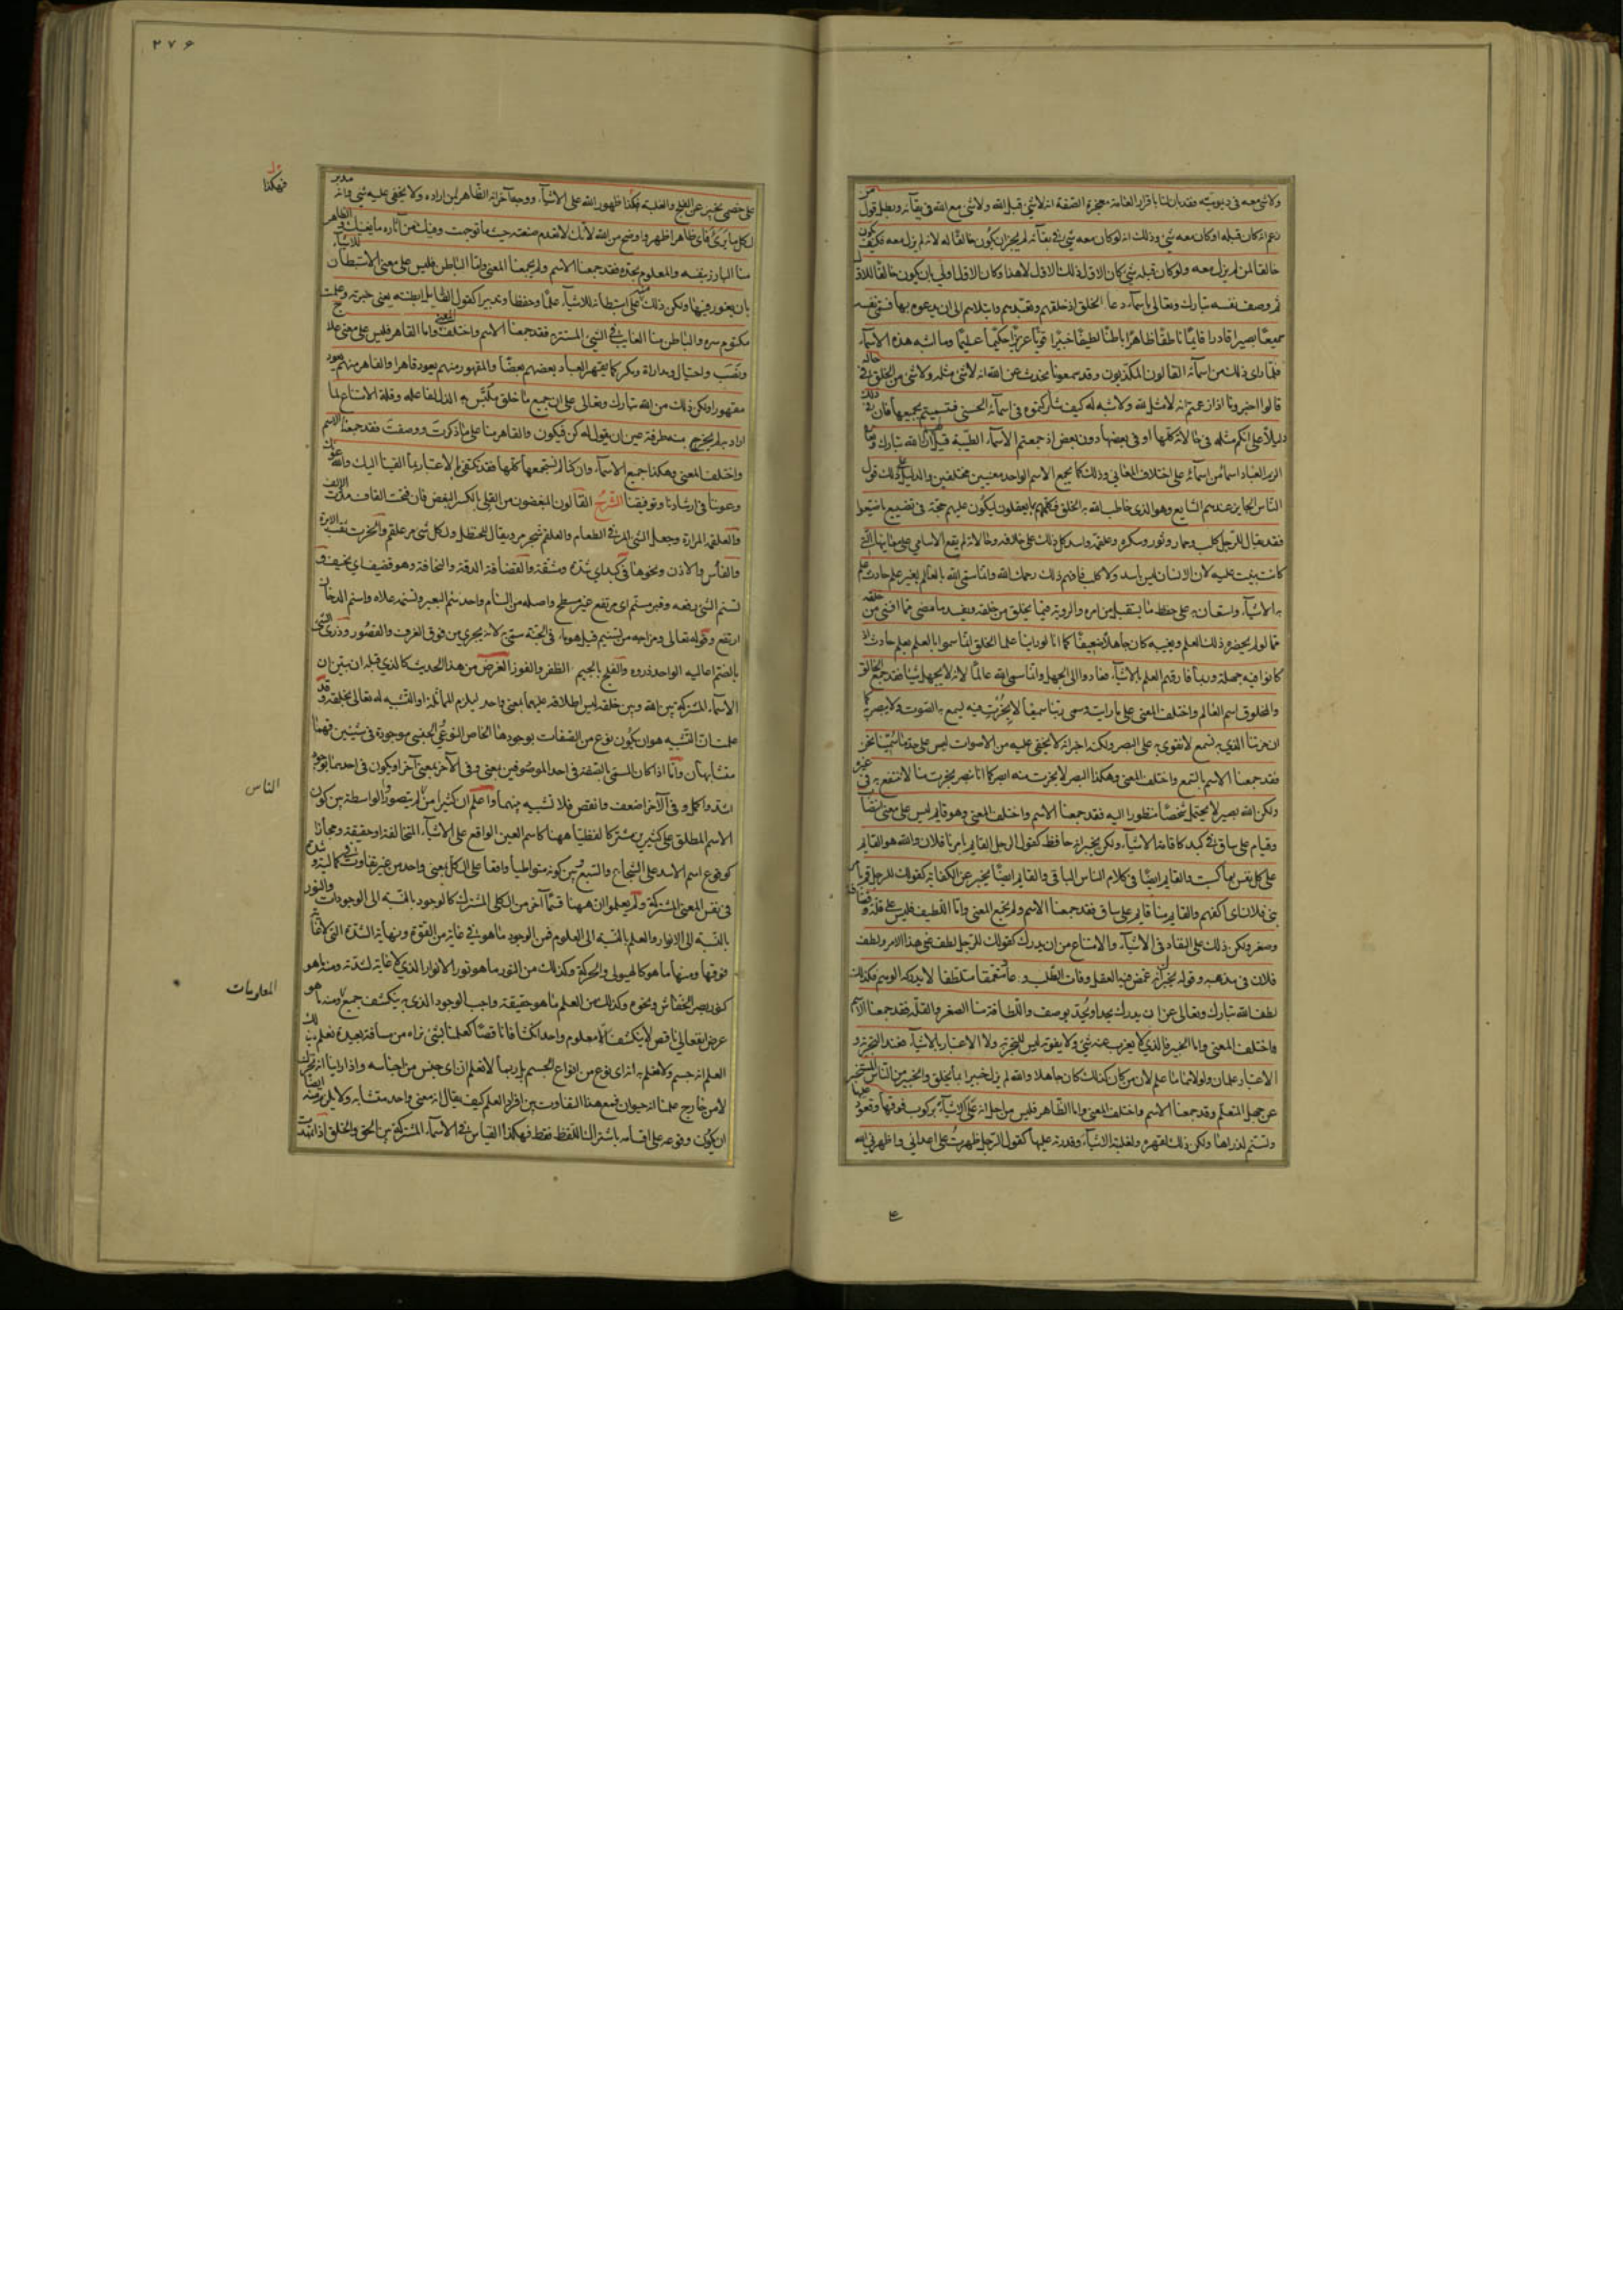 ولا شئ معه فى ديموميته فقد بان لنا باقرار العامة معجزة الصفة انه لا شئ قبل الله ولا شئ مع الله فى بقائه وبطل قول من
زعم انه كان قبله او كان معه شئ وذلك انه لو كان معه شئ فى بقائه لم يجز ان يكون خالقا له لانه لم يزل معه فكيف يكون
خالقا لمن لم يزل معه ولو كان قبله شئ كان الاول ذلك الشئ لا هذا وكان الاول اولى بان يكون خالقا للاول
ثم وصف نفسه تبارك وتعالى باسماء دعا الخلق اذ خلقهم وتعبدهم وابتلاهم الى ان يدعوه بها فسمى نفسه
سميعا بصيرا قادرا قائما ناطقا ظاهرا باطنا لطيفا خبيرا قويا عزيزا حكيما عليما وما اشبه هذه الاسماء
فلما رأى ذلك من اسمائه القالون المكذبون وقد سمعونا نحدث عن الله انه لا شئ مثله ولا شئ من الخلق فى حاله
قالوا اخبرونا اذا زعمتم انه لا مثل لله ولا شبه له كيف شاركتموه فى اسمائه الحسنى فتسميتم بجميعها فان فى ذلك
دليلا على انكم مثله فى حالاته كلها او فى بعضها دون بعض اذ جمعتم الاسماء الطيبة قيل لهم ان الله تبارك وتعالى
الزم العباد اسماء من اسمائه على اختلاف المعانى وذلك كما يجمع الاسم الواحد معنيين مختلفين والدليل على ذلك قول
الناس الجايز عندهم الشايع وهو الذى خاطب الله به الخلق فكلمهم بما يعقلون ليكون عليهم حجة فى تضييع ما ضيعوا
فقد يقال للرجل كلب وحمار وثور وسكرة وعلقمة واسد كل ذلك على خلافه وحالاته لم يقع الاسامى على معانيها التى
كانت بنيت عليه لان الانسان ليس باسد ولا كلب فافهم ذلك رحمك الله وانما سمى الله بالعالم بغير علم حادث علم
به الاشياء واستعان به على حفظ ما يستقبل من امره والروية فيما يخلق من خلقه ويفسد ما مضى مما افنى من خلقه
مما لو لم يحضره ذلك العلم ويغيبه كان جاهلا ضعيفا كما انا لو رأينا علماء الخلق انما سموا بالعلم لعلم حادث اذ
كانوا فيه جهلة وربما فارقهم العلم بالاشياء فعادوا الى الجهل وانما سمى الله عالما لانه لا يجهل شيئا فقد جمع الخالق
والمخلوق اسم العالم واختلف المعنى على ما رايت وسمى ربنا سميعا لا بخرت فيه يسمع به الصوت ولا يبصر به كما
ان خرتنا الذى به نسمع لا نقوى به على البصر ولكنه اخبر انه لا يخفى عليه من الاصوات ليس على حد ما سمينا نحن
فقد جمعنا الاسم بالسمع واختلف المعنى وهكذا البصر لا بخرت منه ابصر كما انا نبصر بخرت منا لا ننتفع به فى غيره
ولكن الله بصير لا يحتمل شخصا منظورا اليه فقد جمعنا الاسم واختلف المعنى وهو قايم ليس على معنى انتصاب
وقيام على ساق فى كبد كما قامت الاشياء ولكن يخبر انه حافظ كقول الرجل القايم بامرنا فلان والله هو القايم
على كل نفس بما كسبت والقايم ايضا فى كلام الناس الباقى والقايم ايضا يخبر عن الكفاية كقولك للرجل قم بامر
بنى فلان اى اكفهم والقايم منا قايم على ساق فقد جمعنا الاسم ولم نجمع المعنى واما اللطيف فليس على قلة وقضافة
وصغر ولكن ذلك على النفاذ فى الاشياء والامتناع من ان يدرك كقولك للرجل لطف عنى هذا الامر ولطف
فلان فى مذهبه وقوله يخبرك انه غمض فيه العقل وفات الطلب وعاد متعمقا متلطفا لا يدركه الوهم فكذلك
لطف الله تبارك وتعالى عن ان يدرك بحد او يحد بوصف واللطافة منا الصغر والقلة فقد جمعنا الاسم
واختلف المعنى واما الخبير فالذى لا يعزب عنه شئ ولا يفوته ليس للتجربة ولا الاعتبار بالاشياء فعند التجربة و
الاعتبار علمان ولولاهما ما علم لان من كان كذلك كان جاهلا والله لم يزل خبيرا بما يخلق والخبير من الناس المستخبر
عن جهل المتعلم وقد جمعنا الاسم واختلف المعنى واما الظاهر فليس من اجل انه على الاشياء بركوب فوقها وقعود عليها
وتسنم لذراها ولكن ذلك لقهره ولغلبته الاشياء وقدرته عليها كقول الرجل ظهرت على اعدائى واظهرنى الله
۲۷۶
على خصمى يخبر عن الفلج والغلبة فهكذا ظهور الله على الاشياء ووجه آخر انه الظاهر لمن اراده ولا يخفى عليه شئ وانه مدبر
لكل ما يرى فاى ظاهر اظهر واوضح من الله لانك لا تعدم صنعته حيثما توجهت وفيك من آثاره ما يغنيك والظاهر
منا البارز بنفسه والمعلوم بحده فقد جمعنا الاسم ولم يجمعنا المعنى واما الباطن فليس على معنى الاستبطان للاشياء
بان يغور فيها ولكن ذلك منه على استبطانه للاشياء علما وحفظا وتدبيرا كقول القايل ابطنته يعنى خبرته وعلمت
مكتوم سره والباطن منا الغايب فى الشئ المستتر فقد جمعنا الاسم واختلف المعنى واما القاهر فليس على معنى علاج
ونصب واحتيال ومداراة ومكر كما يقهر العباد بعضهم بعضا والمقهور منهم يعود قاهرا والقاهر منهم يعود
مقهورا ولكن ذلك من الله تبارك وتعالى على ان جميع ما خلق ملتبس به الذل لفاعله وقلة الامتناع لما
اراد به لم يخرج منه طرفة عين ان يقول له كن فيكون والقاهر منا على ما ذكرت ووصفت فقد جمعنا الاسم
واختلف المعنى وهكذا جميع الاسماء وان كنا لم نستجمعها كلها فقد يكتفى بالاعتبار بما القينا اليك والله عونك
وعوننا فى ارشادنا وتوفيقنا الشرح القالون المبغضون من القلى بالكسر البغض فان فتحت القاف مددت الالف
والعلقمة المرارة وجعل الشئ المر فى الطعام والعلقم شجر مر ويقال للحنظل ولكل شئ مر علقم والخرت ثقب الابرة
والفأس والاذن ونحوها فى كبد اى شدة ومشقة والقضافة الدقة والنحافة وهو قضيف اى نحيف و
تسنم الشئ رفعه وقبر مسنم اى مرتفع غير مسطح واصله من السنام واحد سنم البعير وتسنمه علاه واسنم الدخان
ارتفع وقوله تعالى ومزاجه من تسنيم قيل هو ماء فى الجنة سمى به لانه يجرى من فوق الغرف والقصور وذرى الشئ
بالضم اعاليه الواحد ذروه والفلج بالجيم الظفر والفوز الغرض من هذا الحديث كالذى قبله ان يبين ان
الاسماء المشتركة بين الله وبين خلقه ليس اطلاقه عليهما بمعنى واحد ليلزم المماثلة او التشبيه له تعالى بخلقه وقد
علمت ان التشبيه هو ان يكون نوع من الصفات بوجودها الخاص النوعى الجنسى موجودة فى شيئين فهما
متشابهان واما اذا كان المسمى بالصفة فى احد الموصوفين بمعنى وفى الآخر بمعنى آخر او يكون فى احدهما بوجه
اشد واكمل وفى الآخر اضعف وانقص فلا تشبيه بينهما واعلم ان كثيرا من لم يتصوروا الواسطة بين كون
الاسم المطلق على كثيرين مشتركا لفظيا ههنا كاسم العين الواقع على الاشياء المتخالفة او حقيقة ومجازا
كوقوع اسم الاسد على الشجاع والسبع وبين كونه متواطيا واقعا على الكل بمعنى واحد من غير تفاوت كمالية وشدة
فى نفس المعنى المشتركة ولم يعلموا ان ههنا قسما آخر من الكلى المشترك كالوجود بالنسبة الى الوجودات والنور
بالنسبة الى الانوار والعلم بالنسبة الى العلوم فمن الوجود ما هو فى غاية من القوة ونهاية الشدة التى لا غاية
فوقها ومنها ما هو كالهيولى والحركة وكذلك من النور ما هو نور الانوار الذى لا غاية لشدته ومنه ما هو
كنور بصر الخفاش ونحوه وكذلك من العلم ما هو حقيقته واجب الوجود الذى به ينكشف جميع ومنه ما هو
عرض انفعالى ناقص لا ينكشف الا معلوم واحد انكشافا ناقصا كعلمنا بشئ نراه من مسافة بعيدة نعلم بذلك
العلم انه جسم ولا نعلم به انه اى نوع من انواع الجسم بل ربما لا نعلم ان اى جنس من اجناسه واذا راينا انه تحرك
لا من خارج علمنا انه حيوان فمع هذا التفاوت بين افراد العلم كيف يقال انه معنى واحد متشابه ولا يلزم منه ايضا
ان يكون وقوعه على اقسامه باشتراك اللفظ فقط فهكذا القياس فى الاسماء المشتركة بين الحق والخلق اذا تمهدت
فهكذا
الناس
المعلومات